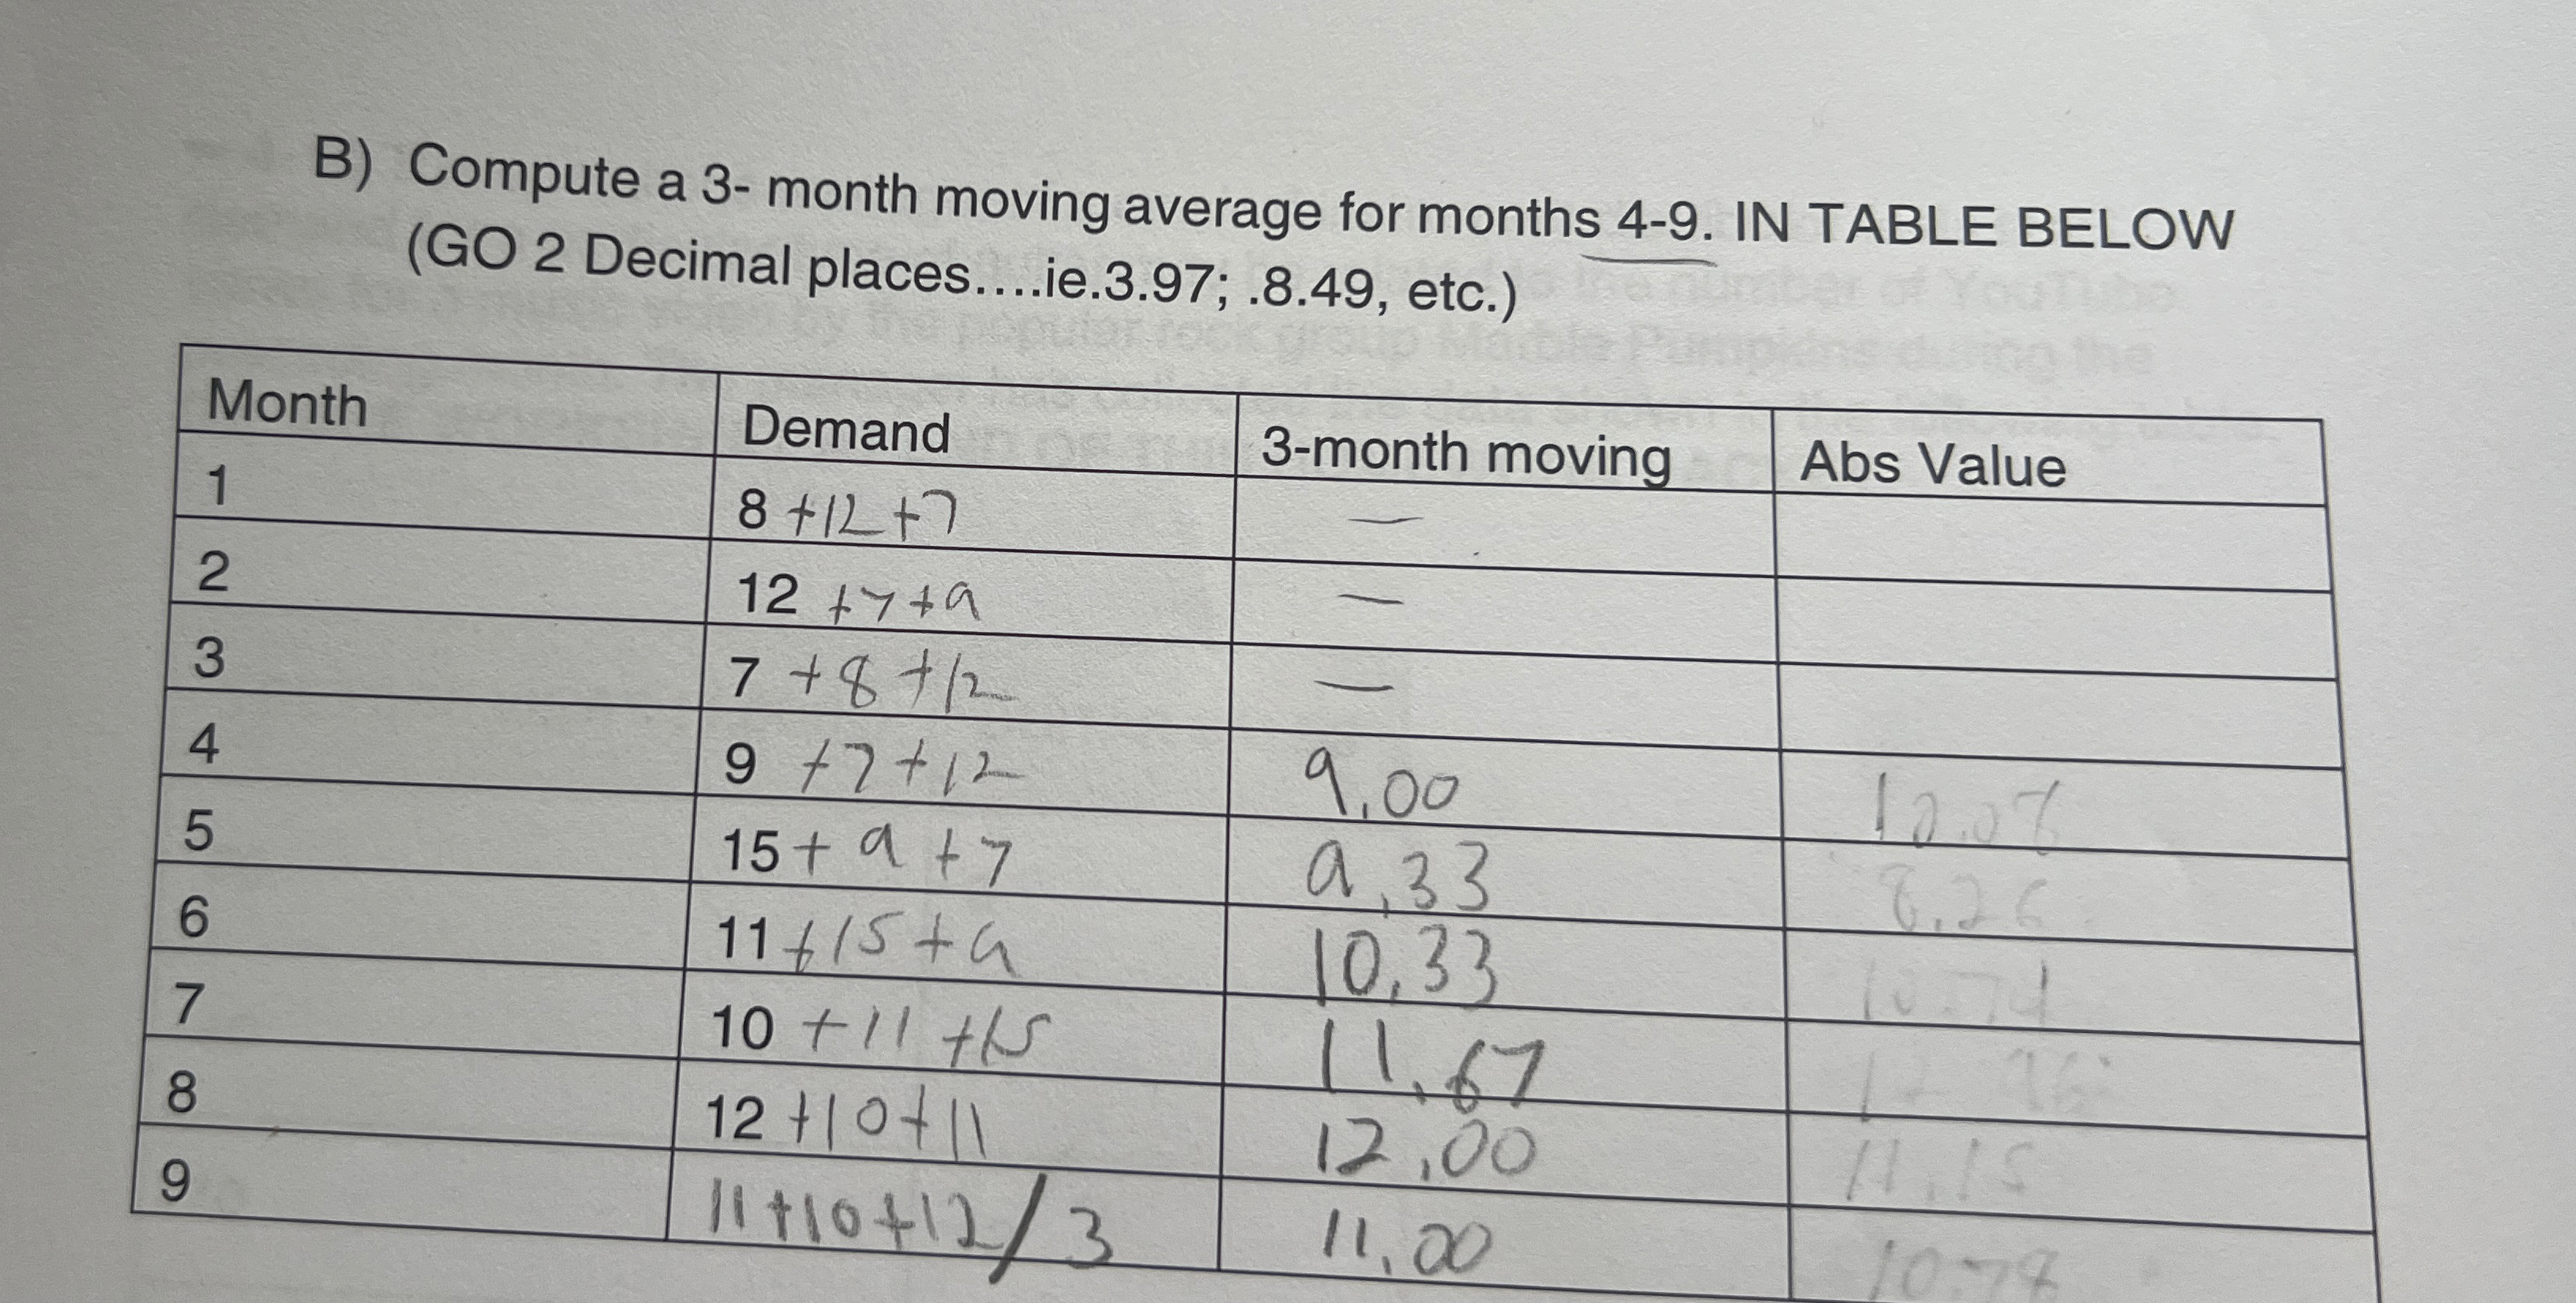 B) Compute a 3- month moving average for months 4-9. IN TABLE BELOW
(GO 2 Decimal places....ie.3.97; .8.49, etc.)
Month Demand 3-month moving Abs Value
1 8 +12 +7 —
2 12 +7 +9 —
3 7 +8 +12 —
4 9 +7 +12 9.00
5 15 + 9 + 7 9.33
6 11 +15 +9 10.33
7 10 +11 +15 11.67
8 12 +10 +11 12.00 11.15
9 11 +10 +12 / 3 11.00 10.78